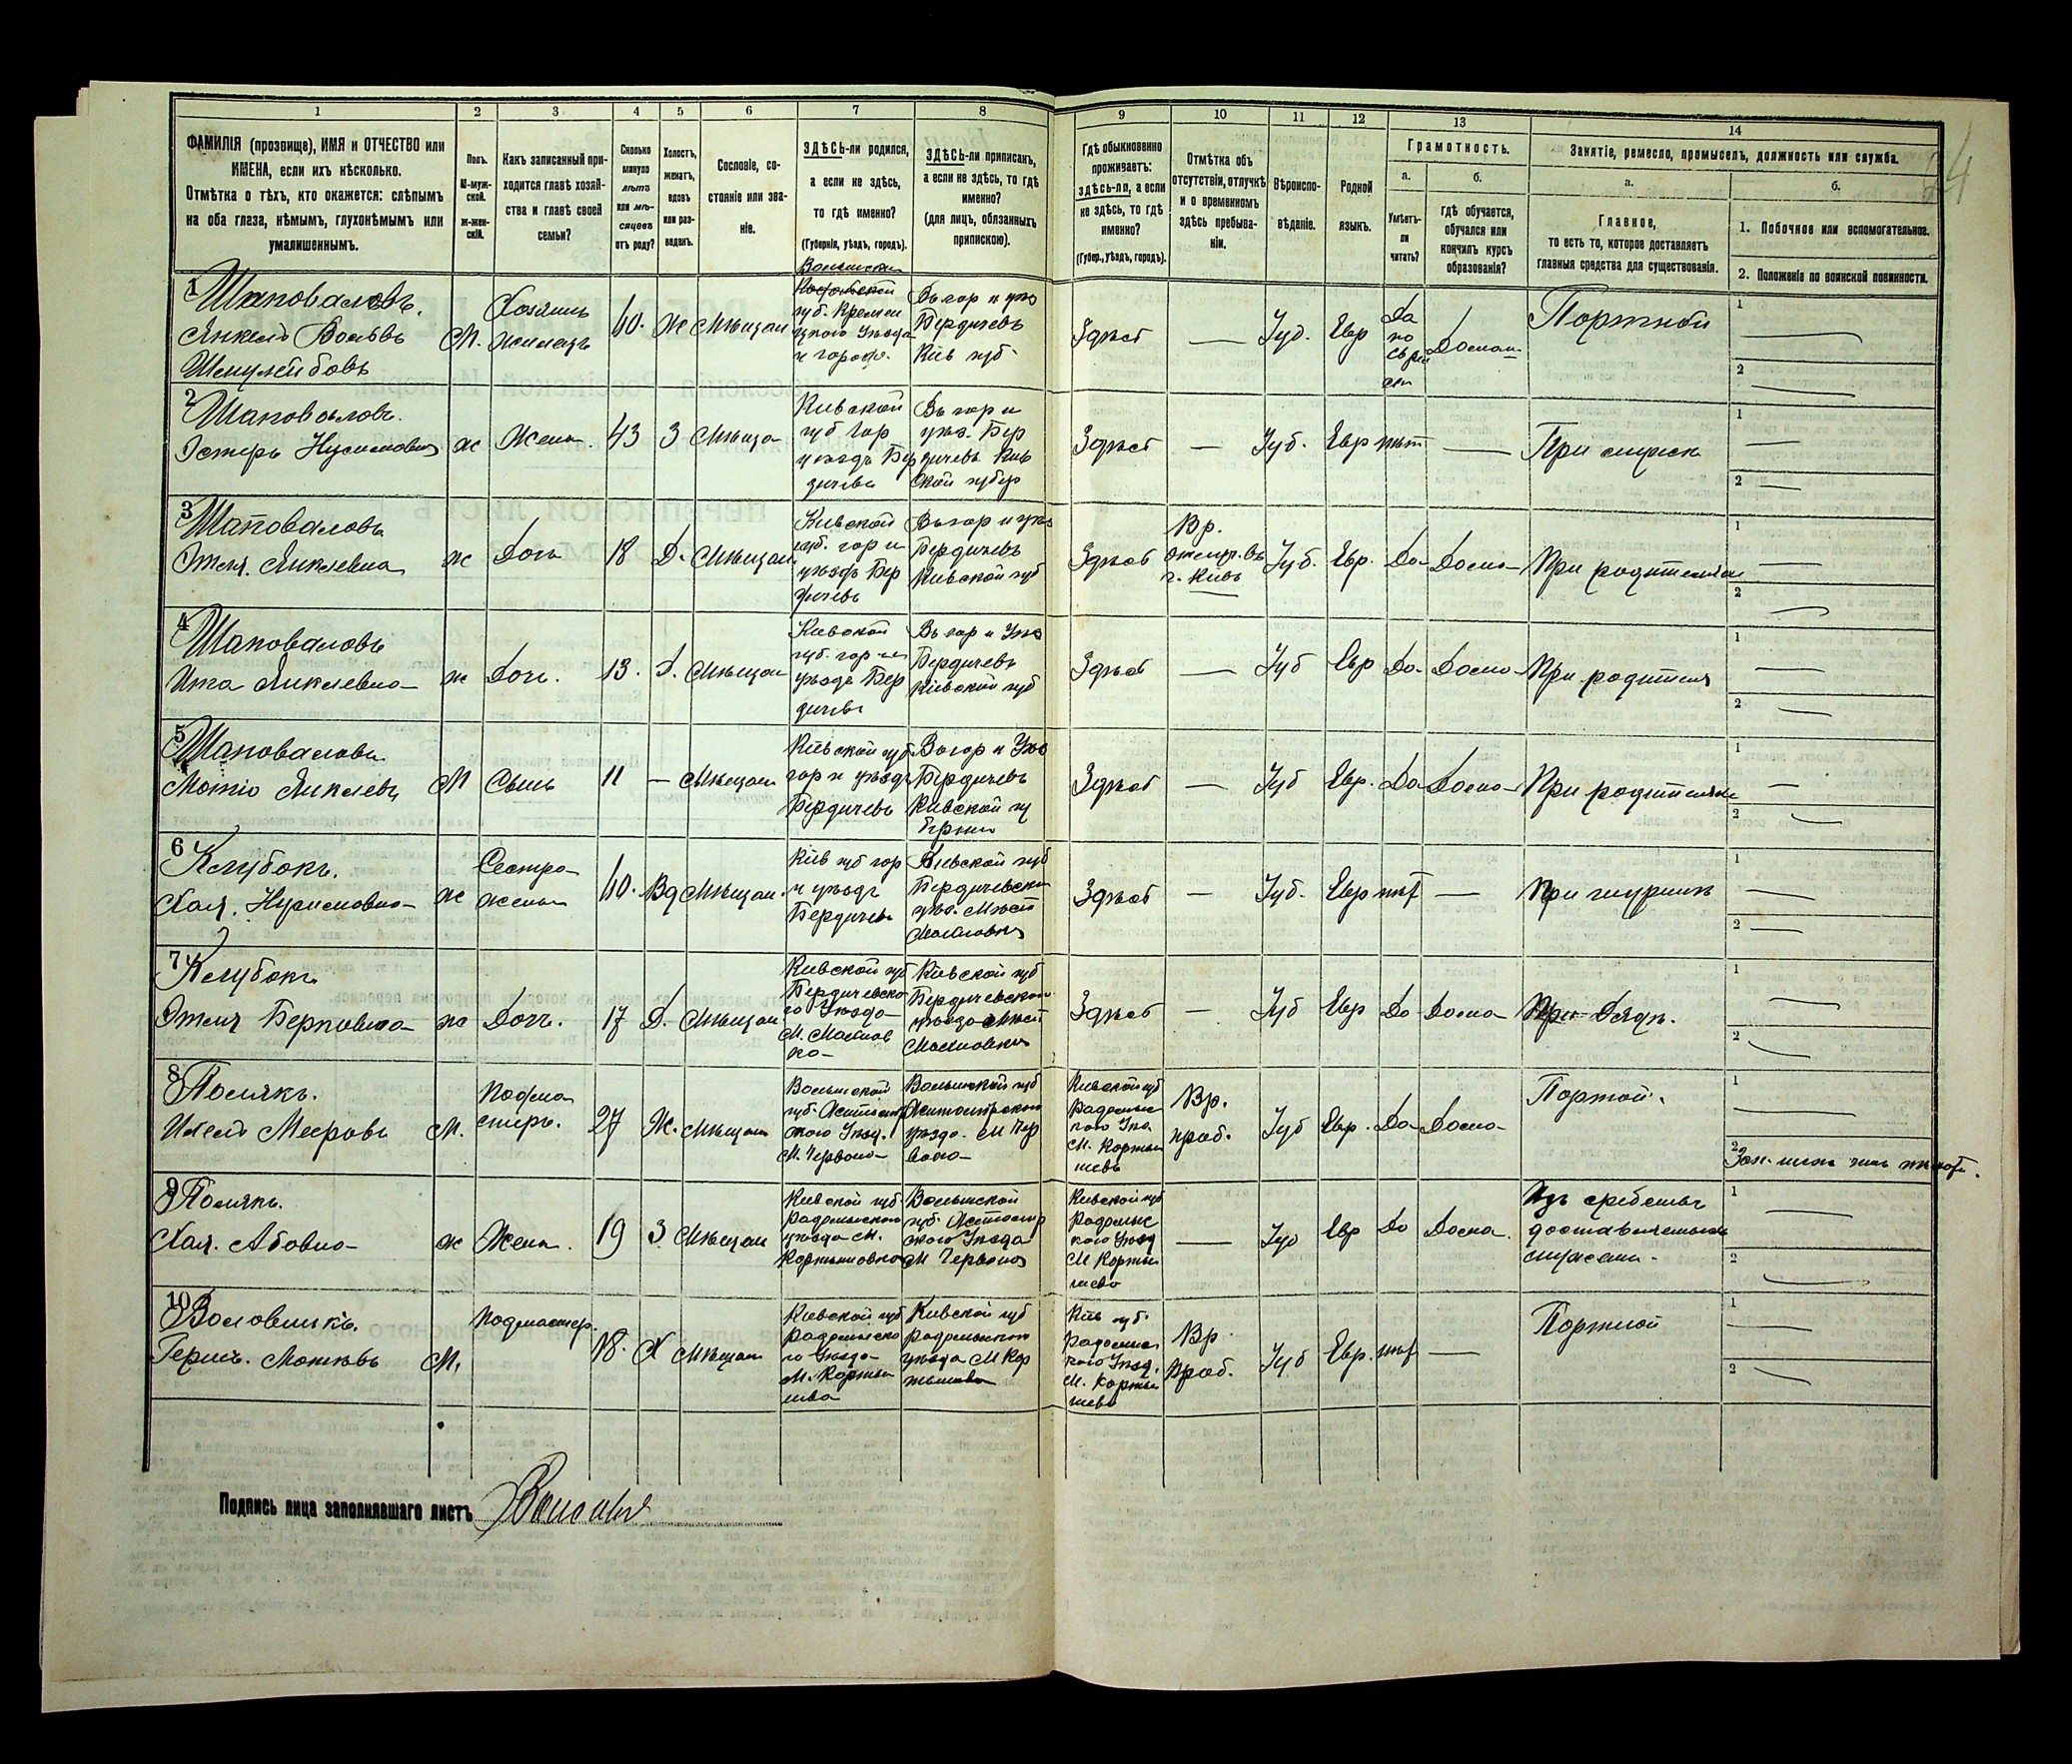 1 2 3 4 5 6 7 8 9 10 11 12 13 14
ФАМИЛІЯ (прозвище), ИМЯ и ОТЧЕСТВО или
ИМЕНА, если ихъ нѣсколько.
Отмѣтка о тѣхъ, кто окажется: слѣпымъ
на оба глаза, нѣмымъ, глухонѣмымъ или
умалишеннымъ.
Полъ.
М-муж-
ской.
Ж-жен-
скій.
Какъ записанный при-
ходится главѣ хозяй-
ства и главѣ своей
семьи?
Сколько
минуло
лѣтъ
или мѣ-
сяцевъ
отъ роду?
Холостъ,
женатъ,
вдовъ
или раз-
веденъ.
Сословіе, со-
стояніе или зва-
ніе.
ЗДѢСЬ-ли родился,
а если не здѣсь,
то гдѣ именно?
(Губернія, уѣздъ, городъ).
ЗДѢСЬ-ли приписанъ,
а если не здѣсь, то гдѣ
именно?
(для лицъ, обязанныхъ
припискою).
Гдѣ обыкновенно
проживаетъ:
здѣсь-ли, а если
не здѣсь, то гдѣ
именно?
(Губер., уѣздъ, городъ).
Отмѣтка объ
отсутствіи, отлучкѣ
и о временномъ
здѣсь пребыва-
ніи.
Вѣроиспо-
вѣданіе.
Родной
языкъ.
Грамотность.
а.
Умѣетъ-
ли
читать?
б.
гдѣ обучается,
обучался или
кончилъ курсъ
образованія?
Занятіе, ремесло, промыселъ, должность или служба.
а.
Главное,
то есть то, которое доставляетъ
главныя средства для существованія.
б.
1. Побочное или вспомогательное.
2. Положеніе по воинской повинности.
1
Шаповаловъ.
Янкель Вольвъ
Шмулейбовъ
М.
Хозяинъ
40.
Ж
Мѣщан
губ. Кремен
цкого Уѣзда
и города.
Въ гор и уѣз
Бердичевъ
Кіев губ.
Здѣсь
—
Іуд.
Евр
Да
по
Домаш
Портной
1
2
2
Шаповалов.
Эстеръ Нусимовна
ж
Жена.
43
З
Мѣща
Киевской
губ гор
и уѣздъ Бер
дичевъ
Въ гор и
уѣз. Бер
дичевъ Киев
ской губер
Здѣсь
—
Іуд.
Евр
нѣт
—
При мужѣ
1
2
3
Шаповаловъ
Этля. Янклевна
ж
Дочь
18
Д.
Мѣщан
Киевской
губ. гор и
уѣздъ Бер
дичевъ
Въ гор и уѣз
Бердичевъ
Киевской губ
Здѣсь
Вр.
отлуч. въ
г. Киев
Іуд.
Евр.
Да
Дома
При родителях
1
2
4
Шаповаловъ
Ита Янклевна
ж
Дочь.
13.
Д.
Мѣщан
Киевской
губ. гор и
уѣздъ Бер
дичевъ
Въ гор и Уѣз
Бердичевъ
Кіевской губ
Здѣсь
—
Іуд
Евр
Да
Дома
При родителя
1
2
5
Шаповалов.
Мотіо Янклевъ
М
Сынъ
11
—
Мѣщан
Кіевской губ
гор и уѣздъ
Бердичевъ
В гор и Уѣз
Бердичевъ
Киевской гу
бернии
Здѣсь
—
Іуд
Евр.
Да
Дома
При родителях
1
2
6
Клубокъ.
Хая. Нусимовна
ж
Сестра
жены
40.
Вд
Мѣщан.
Кіев губ гор
и уѣздъ
Бердичев
Киевской губ
Бердичевскаго
уѣз. Мѣст
Махновка
Здѣсь
—
Іуд.
Евр
нѣт
—
При шуринѣ
1
2
7
Клубокъ
Этля Берковна
ж
Дочь.
17
Д.
Мѣщан
Киевской губ
Бердичевска
го Уѣзда
М. Махнов
ка
Киевской губ
Бердичевской
уѣзда Мѣст
Махновка
Здѣсь
—
Іуд
Евр
Да
Дома
При Дядѣ.
1
2
8
Полякъ.
Мееровъ
М.
Подма
стеръ.
27
Ж.
Мѣщан
Волынской
губ. Житомир
скаго Уѣзд.
М. Червоно
Волынской губ
Житомирской
уѣзда. М Чер
воно
Киевской губ
Радомыс
каго Уѣз
М. Корты
шевъ
Вр.
проб.
Іуд
Евр.
Да
Дома
Портной.
1
2
9
Полякъ.
Хая. Абовна
ж
Жена.
19
З
Мѣщан
Киевской губ
Радомыскаго
уѣзда М.
Волынской
губ. Житомир
скаго Уѣзда
М Червоно
Киевской губ
Радомыс
каго Уѣзд
М Корты
шево
—
Іуд
Евр
Да
Дома.
доставляемыхъ
мужемъ.
1
2
10
Воловникъ.
Гершъ. Мошковъ
М.
Подмастер.
18.
Х
Мѣщан
Киевской губ
Радомыско
го Уѣзда
М. Корты
шева
Киевской губ
Радомыского
уѣзда М Кор
тышева
Кіев губ.
Радомыс
каго Уѣзд.
М. Корты
шево
Вр.
проб.
Іуд
Евр.
нѣт
—
Портной
1
2
Подпись лица заполнявшаго листъ